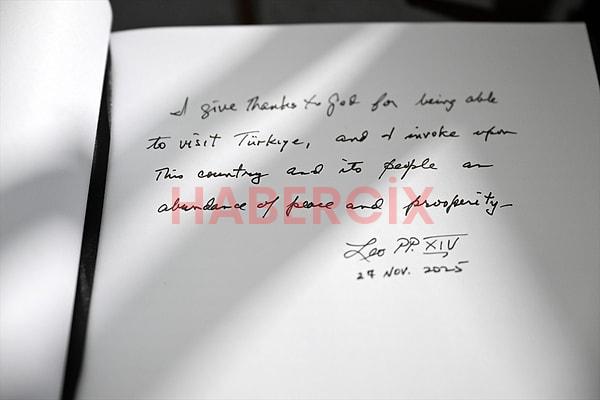 I give thanks to God for being able
to visit Türkiye, and I invoke upon
this country and its people an
abundance of peace and prosperity
HABERCİX
Leo PP. XIV
27 NOV. 2025